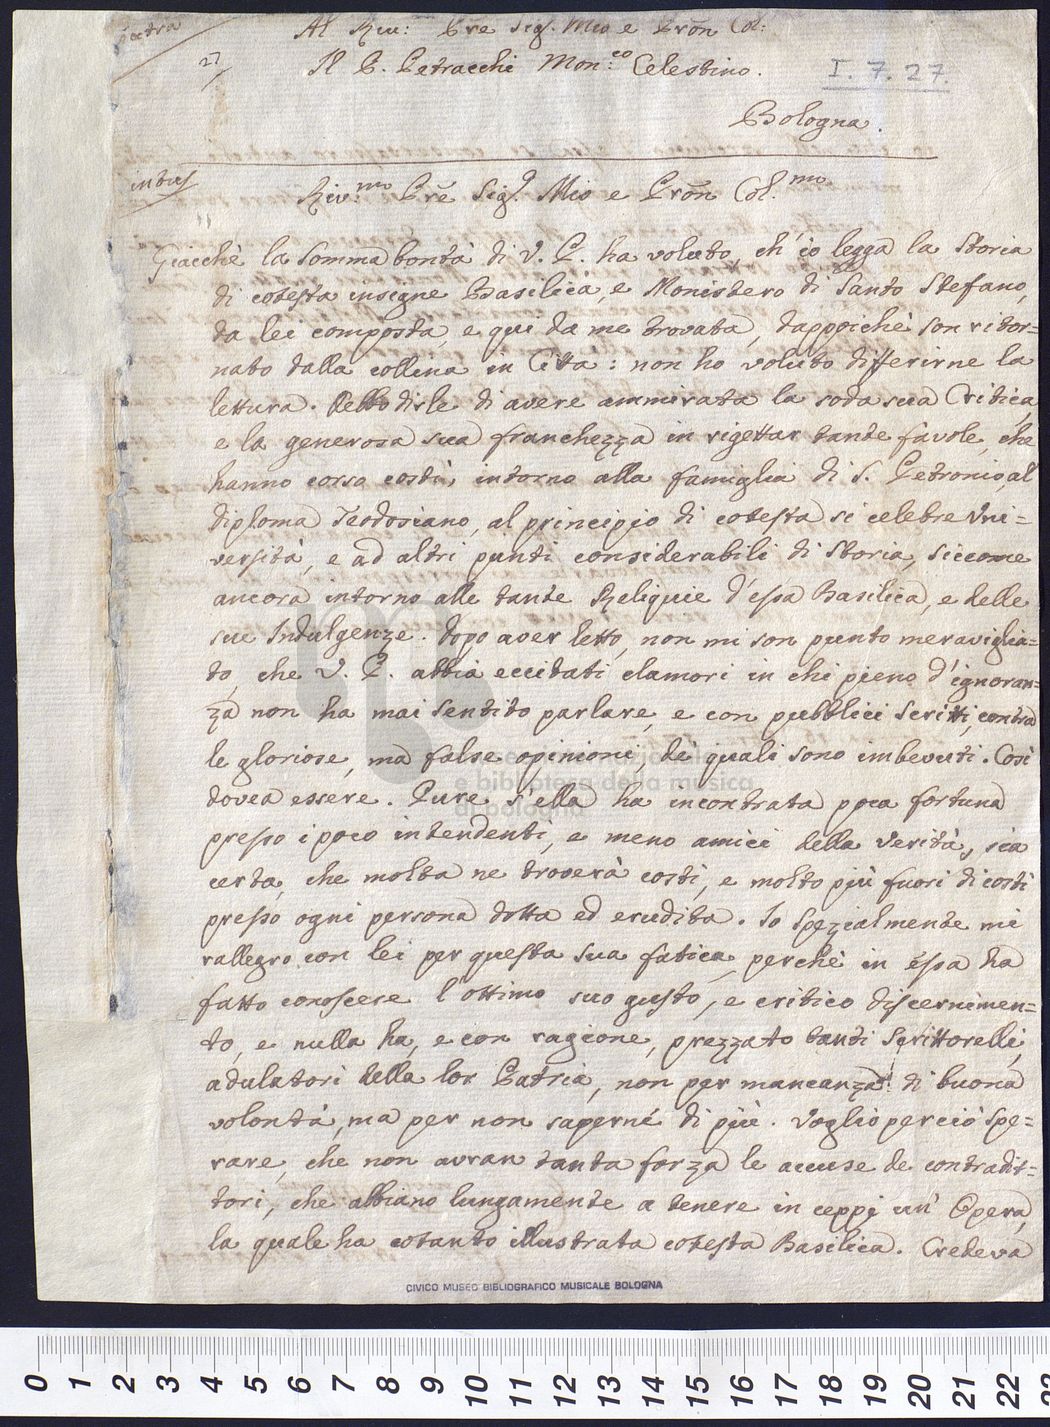 extra
Al Riv: Pre Sig. Mio e Pron Col:
27
Il P. Petracchi Mon:co Celestino.
I. 7. 27.
Bologna.
intus
Riv:mo Pre Sig.r Mio e Pron Col.mo
Giacchè la somma bontà di V. P. ha voluto, ch'io legga la Storia
di cotesta insigne Basilica, e Monistero di Santo Stefano,
da lei composta, e qui da me trovata, dappoichè son ritor=
nato dalla collina in Città: non ho voluto differirne la
lettura. Debbo dirle di avere ammirata la soda sua Critica,
e la generosa sua franchezza in rigettar tante favole, che
hanno corso costì, intorno alla famiglia di S. Petronio, al
diploma Teodosiano, al principio di cotesta si celebre Uni=
versità, e ad altri punti considerabili di Storia, siccome
ancora intorno alle tante Reliquie d'essa Basilica, e delle
sue Indulgenze. Dopo aver letto, non mi son punto meraviglia=
to, che V. P. abbia eccitati clamori in chi pieno d'ignoran=
za non ha mai sentito parlare, e con pubblici scritti, contra
le gloriose, ma false opinioni, de' quali sono imbevuti. Così
dovea essere. Pure s'ella ha incontrata poca fortuna
presso i poco intendenti, e meno amici della verità, sia
certa, che molta ne troverà costì, e molto più fuori di costì
presso ogni persona dotta ed erudita. Io spezialmente mi
rallegro con lei per questa sua fatica, perchè in essa ha
fatto conoscere l'ottimo suo gusto, e critico discernimen=
to, e nulla ha, e con ragione, prezzato tanti Scrittorelli,
adulatori della lor Patria, non per mancanza di buona
volontà, ma per non saperne di più. Voglio perciò spe=
rare, che non avran tanta forza le accuse de contradit=
tori, che abbiano lungamente a tenere in ceppi un' Opera,
la quale ha cotanto illustrata cotesta Basilica. Credeva
e biblioteca della musica
di bologna
CIVICO MUSEO BIBLIOGRAFICO MUSICALE BOLOGNA
0 1 2 3 4 5 6 7 8 9 10 11 12 13 14 15 16 17 18 19 20 21 22 23